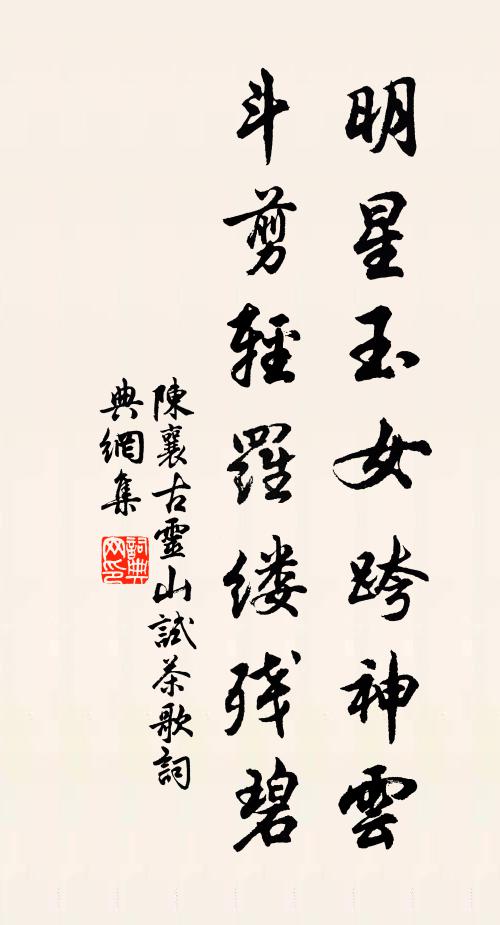 明星玉女跨神雲
斗剪輕羅缕残碧
陳襄古靈山試茶歌詞
典網集
詞典
网印